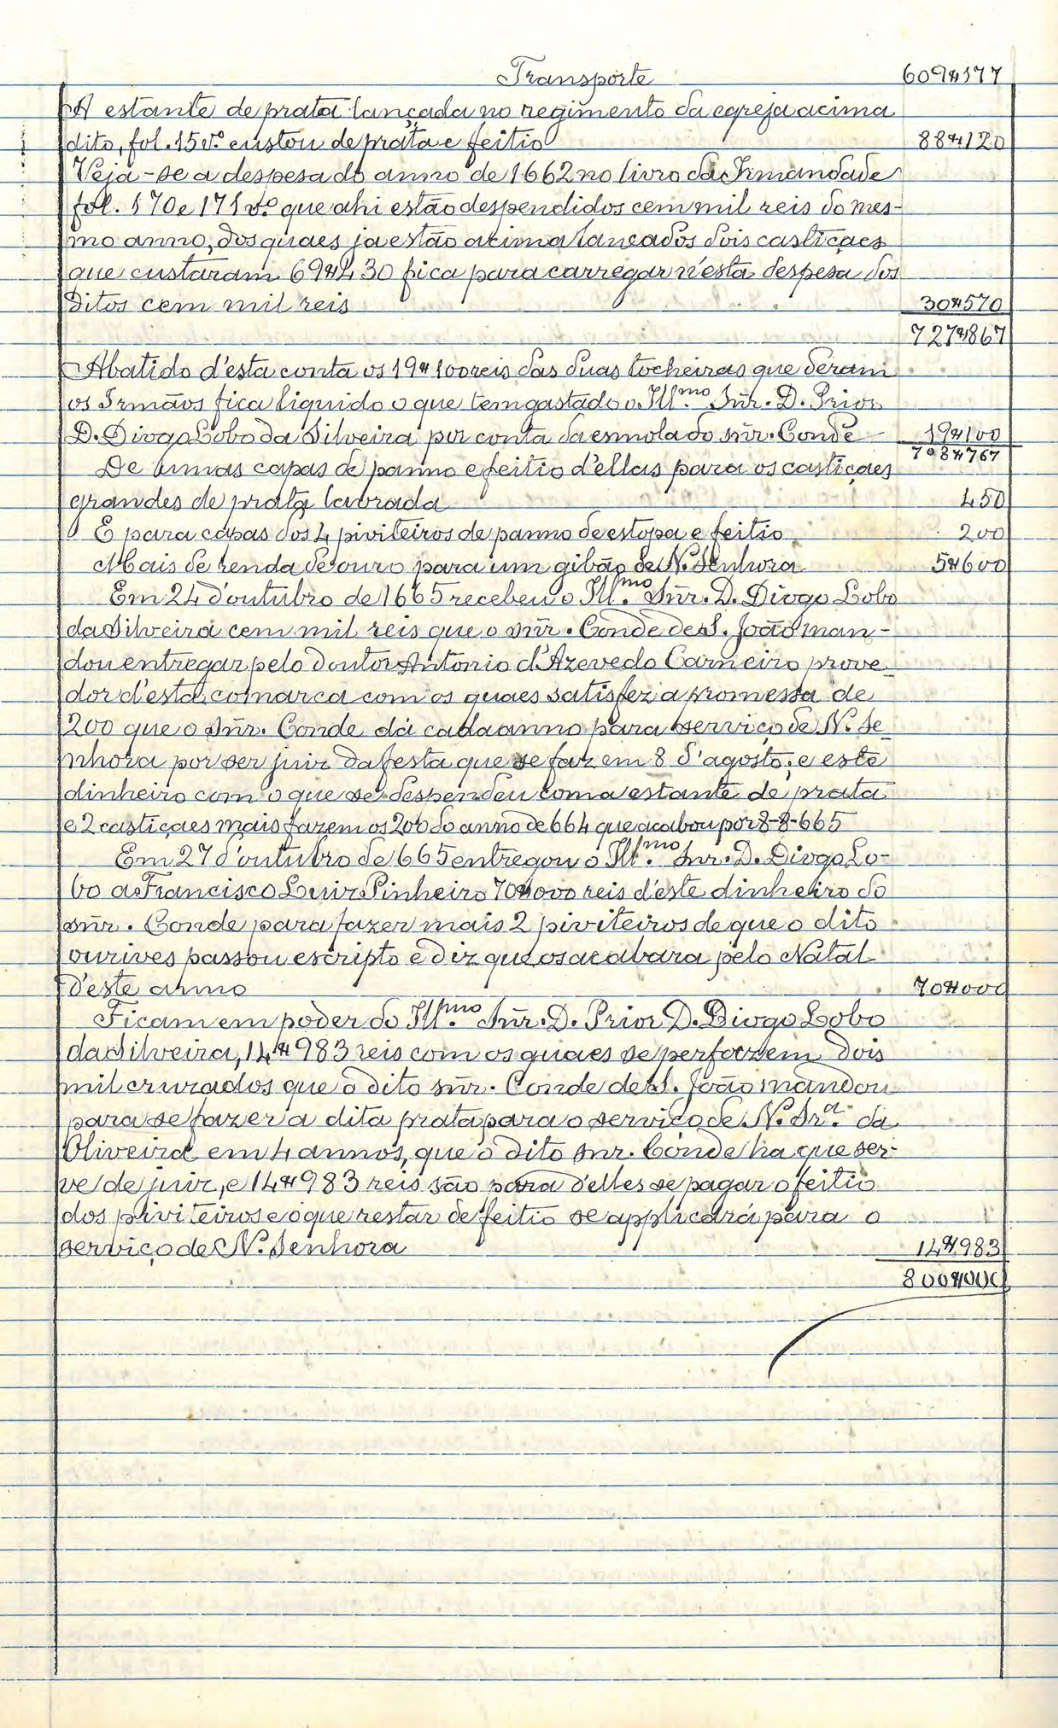 Transporte 609$177
A estante de prata lançada no regimento da egreja acima
dito, fol. 15 v.º custou de prata e feitio 88$120
Veja-se a despesa do anno de 1662 no livro da Irmandade
fol. 170 e 171 v.º que ahi estão despendidos cem mil reis do mes-
mo anno, dos quaes ja estão acima lançados dois castiçaes
que custaram 69$430 fica para carregar n'esta despesa dos
ditos cem mil reis 30$570
727$867
Abatido d'esta conta os 19$100 reis das duas tocheiras que deram
os Irmãos fica liquido o que tem gastado o Ill.mo Snr. D. Prior
D. Diogo Lobo da Silveira por conta da esmola do snr. Conde 19$100
708$767
De umas capas de panno e feitio d'ellas para os castiçaes
grandes de prata lavrada 450
E para capas dos 4 piviteiros de panno de estopa e feitio 200
Mais de renda de ouro para um gibão de N. Senhora 5$600
Em 24 d'outubro de 1665 recebeu o Ill.mo Snr. D. Diogo Lobo
da Silveira cem mil reis que o snr. Conde de S. João man-
dou entregar pelo doutor Antonio d'Azevedo Carneiro prove-
dor d'esta comarca com os quaes satisfez a promessa de
200 que o Snr. Conde dá cada anno para serviço de N. Se-
nhora por ser juiz da festa que se faz em 8 d'agosto; e este
dinheiro com o que se despendeu com a estante de prata
e 2 castiçaes mais fazem os 200 do anno de 664 que acabou por 8-8-665
Em 27 d'outubro de 665 entregou o Ill.mo Snr. D. Diogo Lo-
bo a Francisco Luiz Pinheiro 70$000 reis d'este dinheiro do
snr. Conde para fazer mais 2 piviteiros de que o dito
ourives passou escripto e diz que os acabara pelo Natal
d'este anno 70$000
Ficam em poder do Ill.mo Snr. D. Prior D. Diogo Lobo
da Silveira, 14$983 reis com os quaes se perfazem dois
mil cruzados que o dito snr. Conde de S. João mandou
para se fazer a dita prata para o serviço de N. Sr.a da
Oliveira em 4 annos, que o dito snr. Conde ha que ser-
ve de juiz, e 14$983 reis são para d'elles se pagar o feitio
dos piviteiros e o que restar de feitio se applicará para o
serviço de N. Senhora 14$983
800$000